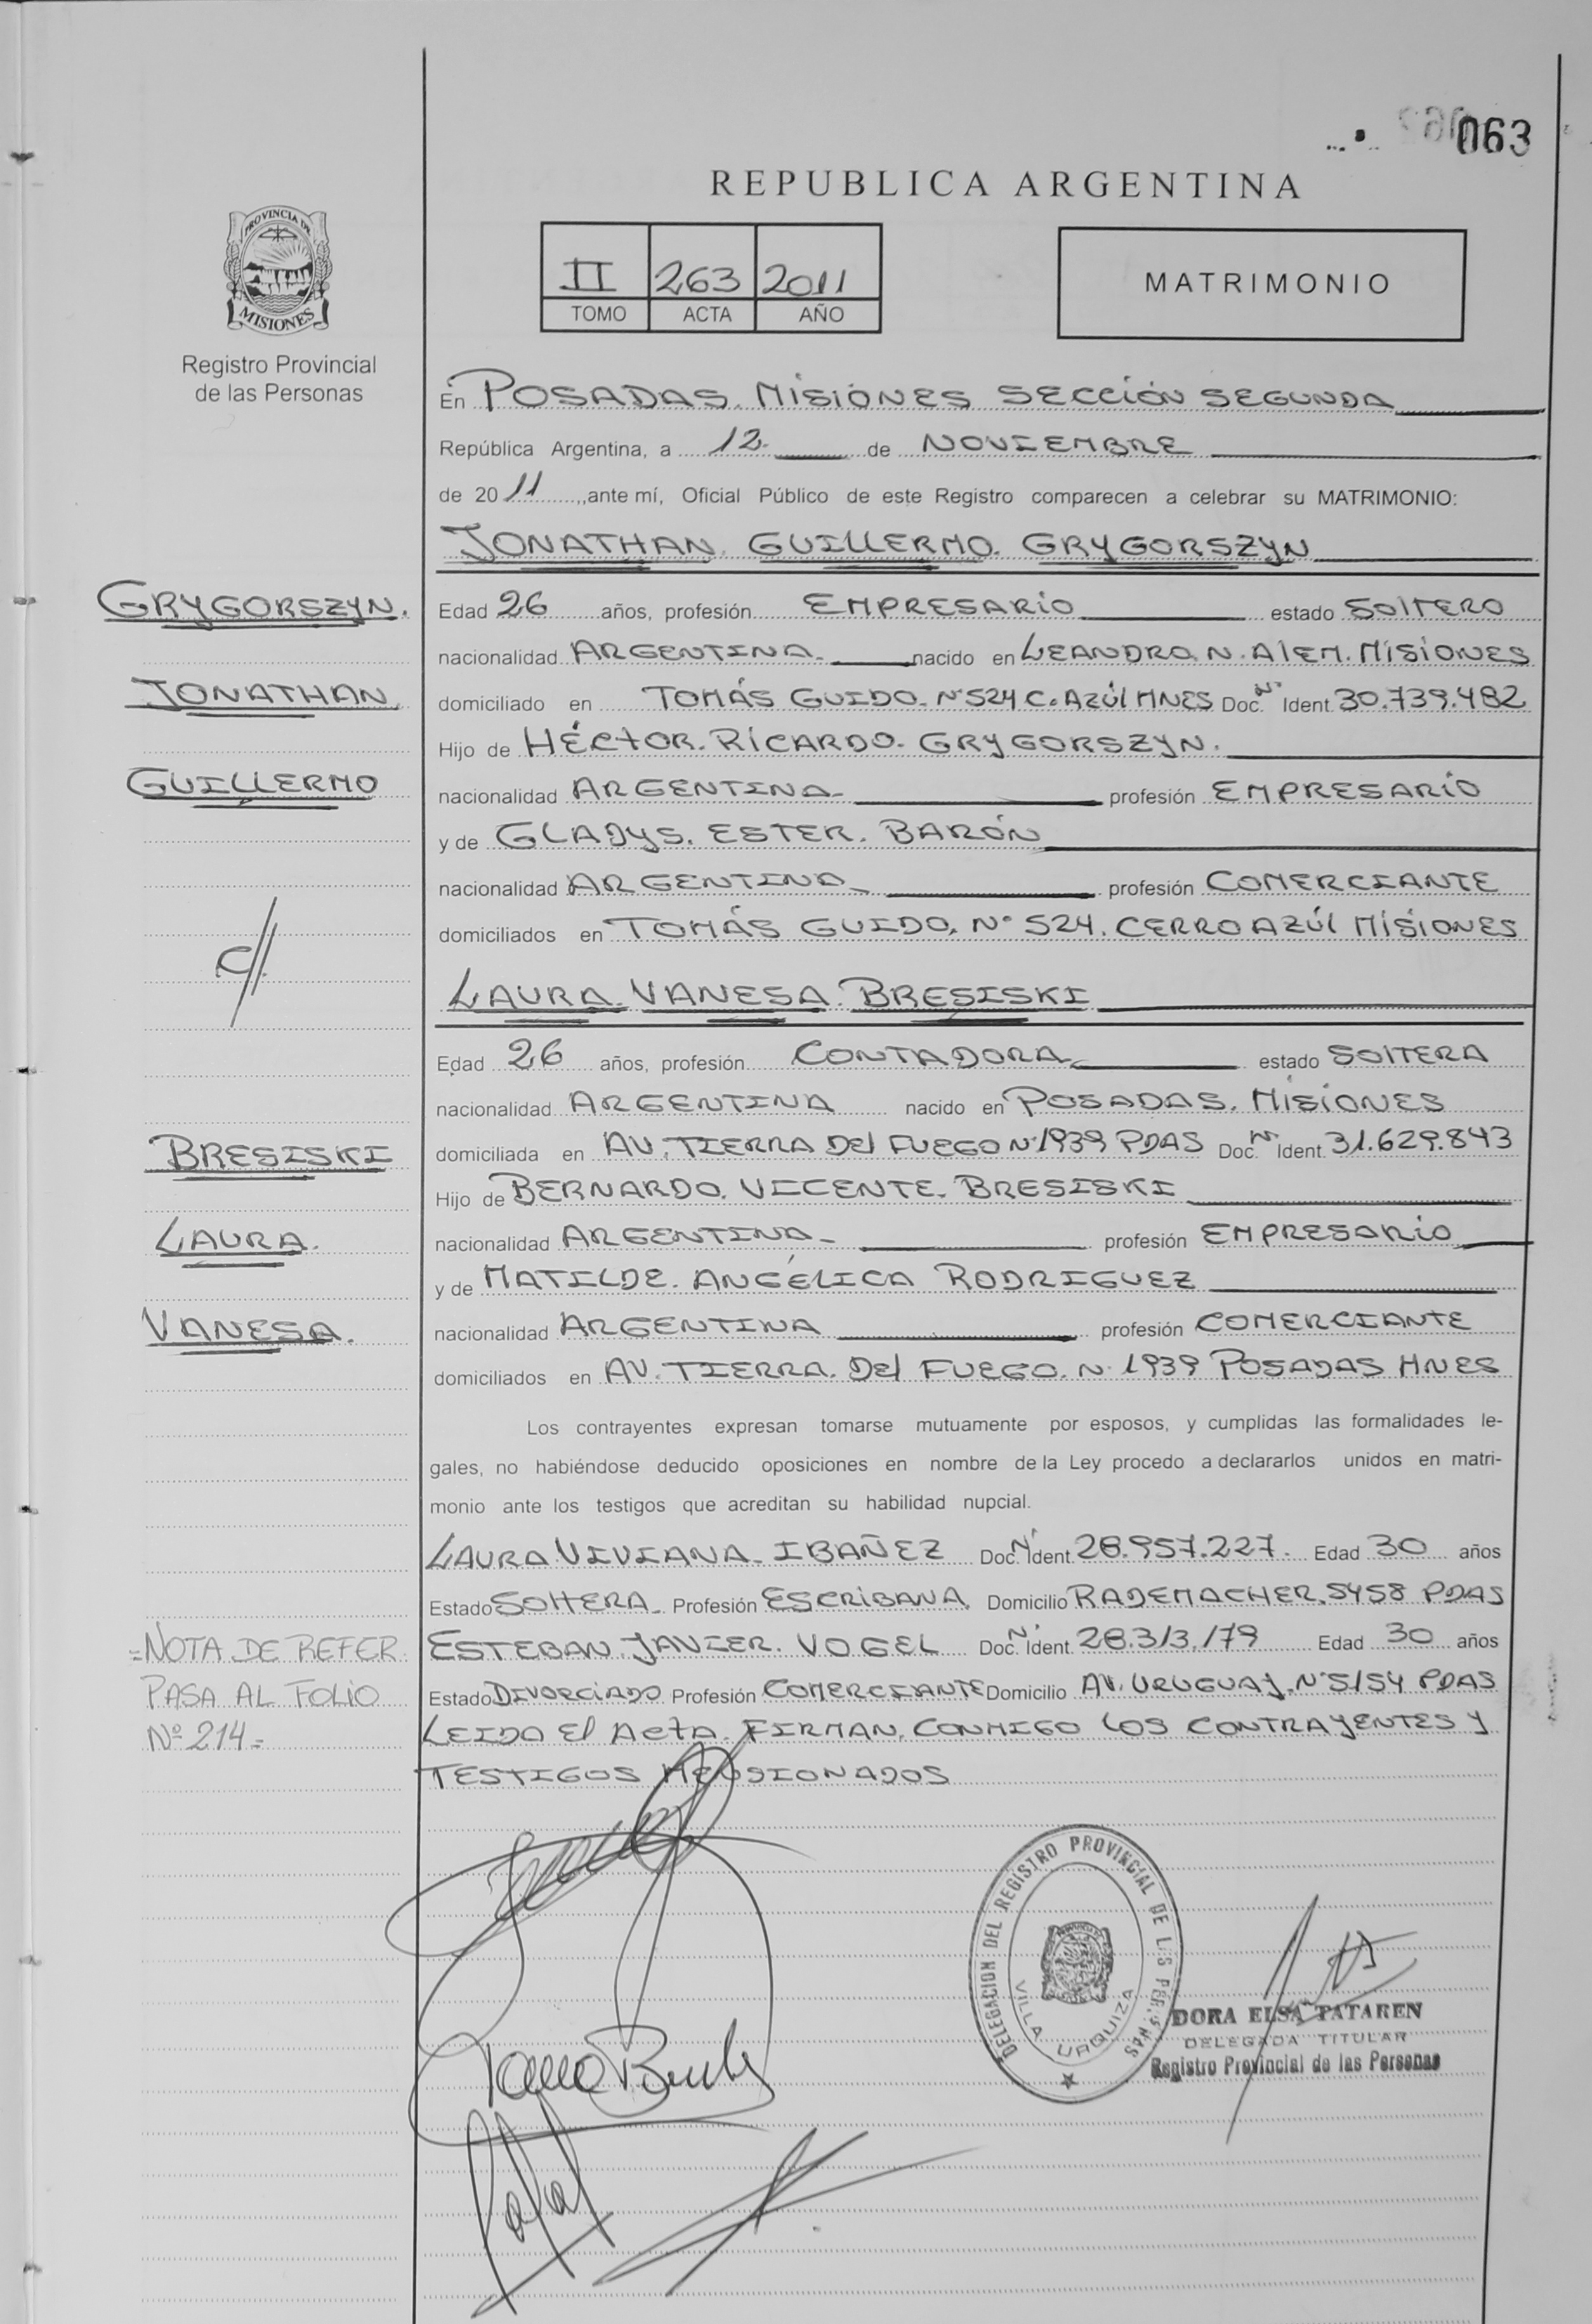 063
REPUBLICA ARGENTINA
PROVINCIA DE
MISIONES
Registro Provincial
de las Personas
II 263 2011
TOMO ACTA AÑO
MATRIMONIO
En POSADAS. MISIONES SECCIÓN SEGUNDA
República Argentina, a 12 de NOVIEMBRE
de 2011, ante mí, Oficial Público de este Registro comparecen a celebrar su MATRIMONIO:
JONATHAN. GUILLERMO. GRYGORSZYN
GRYGORSZYN.
Edad 26 años, profesión EMPRESARIO estado SOLTERO
nacionalidad ARGENTINA. nacido en LEANDRO. N. ALEM. MISIONES
JONATHAN
domiciliado en TOMÁS GUIDO. Nº 524 C. AZÚL MNES Doc. Nº Ident. 30.739.482
Hijo de HÉCTOR. RICARDO. GRYGORSZYN.
GUILLERMO
nacionalidad ARGENTINA- profesión EMPRESARIO
y de GLADYS. ESTER. BARÓN
nacionalidad ARGENTINA- profesión COMERCIANTE
domiciliados en TOMÁS GUIDO. Nº 524. CERRO AZÚL MISIONES
C//
LAURA. VANESA. BRESISKI
Edad 26 años, profesión CONTADORA estado SOLTERA
nacionalidad ARGENTINA nacido en POSADAS. MISIONES
BRESISKI
domiciliada en AV. TIERRA DEL FUEGO Nº 1939 PDAS Doc. Nº Ident. 31.629.843
Hijo de BERNARDO. VICENTE. BRESISKI
LAURA.
nacionalidad ARGENTINA- profesión EMPRESARIO
y de MATILDE. ANGÉLICA RODRIGUEZ
VANESA.
nacionalidad ARGENTINA profesión COMERCIANTE
domiciliados en AV. TIERRA. DEL FUEGO. Nº 1939 POSADAS MNES
Los contrayentes expresan tomarse mutuamente por esposos, y cumplidas las formalidades le-
gales, no habiéndose deducido oposiciones en nombre de la Ley procedo a declararlos unidos en matri-
monio ante los testigos que acreditan su habilidad nupcial.
LAURA VIVIANA. IBAÑEZ Doc. Nº Ident. 28.957.227. Edad 30 años
Estado SOLTERA- Profesión ESCRIBANA. Domicilio RADEMACHER. 5458 PDAS
=NOTA DE REFER.
ESTEBAN. JAVIER. VOGEL Doc. Nº Ident. 28.313.179 Edad 30 años
PASA AL FOLIO
Estado DIVORCIADO Profesión COMERCIANTE Domicilio AV. URUGUAY. Nº 5154 PDAS
Nº 214=
LEIDO EL ACTA. FIRMAN. CONMIGO LOS CONTRAYENTES Y
TESTIGOS MENSIONADOS
DELEGACION DEL REGISTRO PROVINCIAL DE LAS PERSONAS
VILLA URQUIZA
DORA ELSA TATAREN
DELEGADA TITULAR
Registro Provincial de las Personas